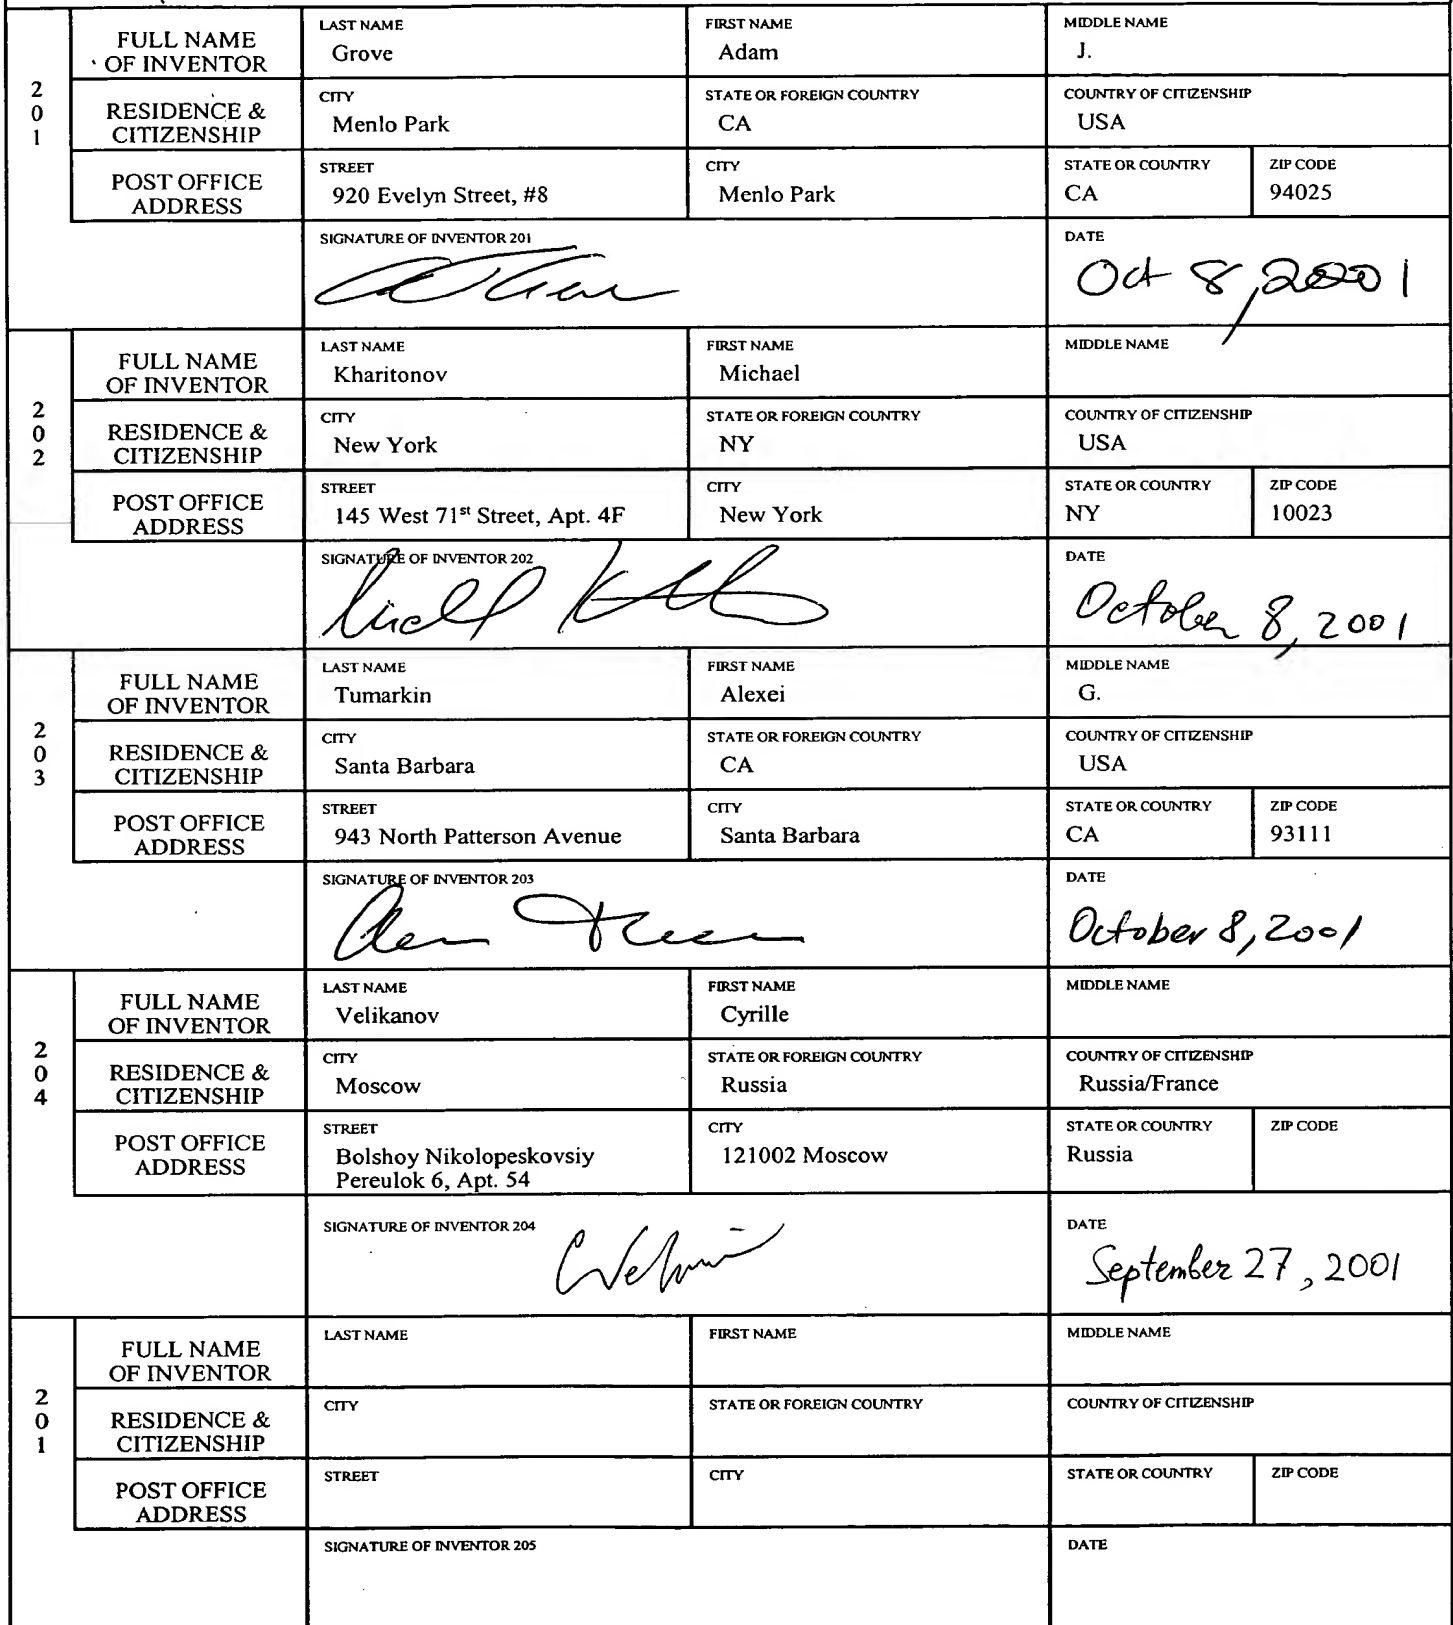 2
0
1
FULL NAME
OF INVENTOR
LAST NAME
Grove
FIRST NAME
Adam
MIDDLE NAME
J.
RESIDENCE &
CITIZENSHIP
CITY
Menlo Park
STATE OR FOREIGN COUNTRY
CA
COUNTRY OF CITIZENSHIP
USA
POST OFFICE
ADDRESS
STREET
920 Evelyn Street, #8
CITY
Menlo Park
STATE OR COUNTRY
CA
ZIP CODE
94025
SIGNATURE OF INVENTOR 201
DATE
Oct 8, 2001
2
0
2
FULL NAME
OF INVENTOR
LAST NAME
Kharitonov
FIRST NAME
Michael
MIDDLE NAME
RESIDENCE &
CITIZENSHIP
CITY
New York
STATE OR FOREIGN COUNTRY
NY
COUNTRY OF CITIZENSHIP
USA
POST OFFICE
ADDRESS
STREET
145 West 71st Street, Apt. 4F
CITY
New York
STATE OR COUNTRY
NY
ZIP CODE
10023
SIGNATURE OF INVENTOR 202
DATE
October 8, 2001
2
0
3
FULL NAME
OF INVENTOR
LAST NAME
Tumarkin
FIRST NAME
Alexei
MIDDLE NAME
G.
RESIDENCE &
CITIZENSHIP
CITY
Santa Barbara
STATE OR FOREIGN COUNTRY
CA
COUNTRY OF CITIZENSHIP
USA
POST OFFICE
ADDRESS
STREET
943 North Patterson Avenue
CITY
Santa Barbara
STATE OR COUNTRY
CA
ZIP CODE
93111
SIGNATURE OF INVENTOR 203
DATE
October 8, 2001
2
0
4
FULL NAME
OF INVENTOR
LAST NAME
Velikanov
FIRST NAME
Cyrille
MIDDLE NAME
RESIDENCE &
CITIZENSHIP
CITY
Moscow
STATE OR FOREIGN COUNTRY
Russia
COUNTRY OF CITIZENSHIP
Russia/France
POST OFFICE
ADDRESS
STREET
Bolshoy Nikolopeskovsiy
Pereulok 6, Apt. 54
CITY
121002 Moscow
STATE OR COUNTRY
Russia
ZIP CODE
SIGNATURE OF INVENTOR 204
DATE
September 27, 2001
2
0
1
FULL NAME
OF INVENTOR
LAST NAME
FIRST NAME
MIDDLE NAME
RESIDENCE &
CITIZENSHIP
CITY
STATE OR FOREIGN COUNTRY
COUNTRY OF CITIZENSHIP
POST OFFICE
ADDRESS
STREET
CITY
STATE OR COUNTRY
ZIP CODE
SIGNATURE OF INVENTOR 205
DATE